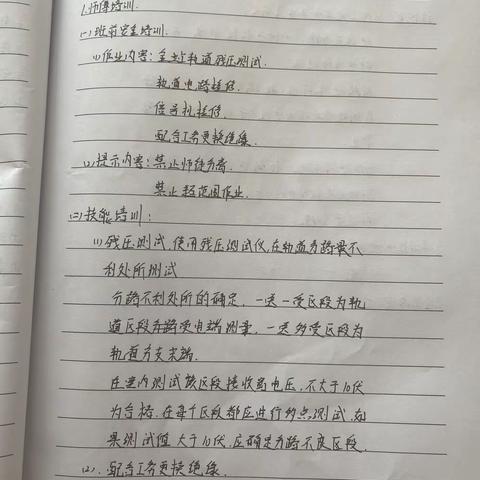 1.师傅培训.
(一)班前安全培训.
(1)作业内容:全站轨道残压测试.
轨道电路检修.
信号机检修.
配合工务更换绝缘.
(2)提示内容:禁止师徒分离.
禁止超范围作业.
(二)技能培训:
(1)残压测试,使用残压测试仪,在轨道分路最不
利处所测试
分路不利处所的确定,一送一受区段为轨
道区段分路受电端测量,一送多受区段为
轨道分支末端.
在室内测试该区段接收器电压,不大于10伏
为合格.在每个区段都应进行多点测试,如
果测试值大于10伏,应确定分路不良区段.
(2).配合工务更换绝缘.